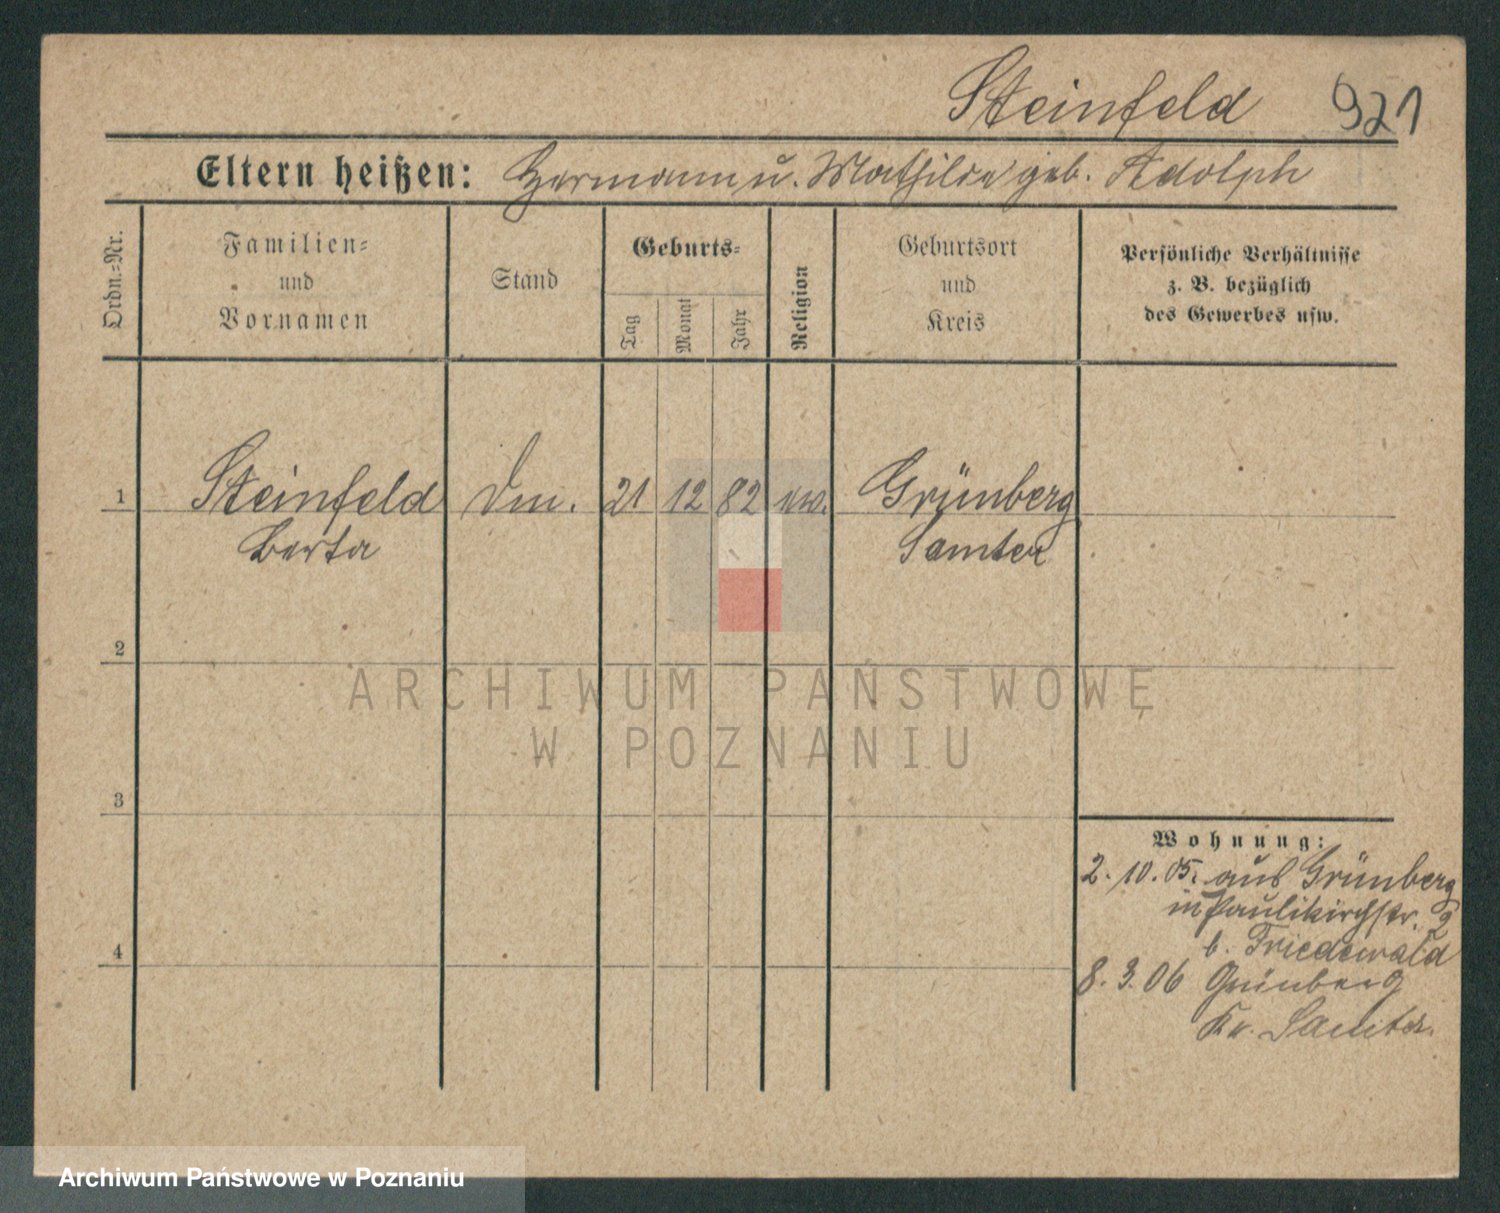 Steinfeld 921
Eltern heißen: Hermann u. Mathilde geb. Adolph
Ordn.=Nr.
Familien=
und
Vornamen
Stand
Geburts=
Tag
Monat
Jahr
Religion
Geburtsort
und
Kreis
Persönliche Verhältnisse
z. B. bezüglich
des Gewerbes usw.
1 Steinfeld 21 12 82 ev. Grünberg
Berta Samter
2
3
4
Wohnung:
2. 10. 05. aus Grünberg
in Paulikirchstr. 2
b. Friedewald
8. 3. 06 Grünberg
Kr. Samter.
ARCHIWUM PAŃSTWOWE
W POZNANIU
Archiwum Państwowe w Poznaniu